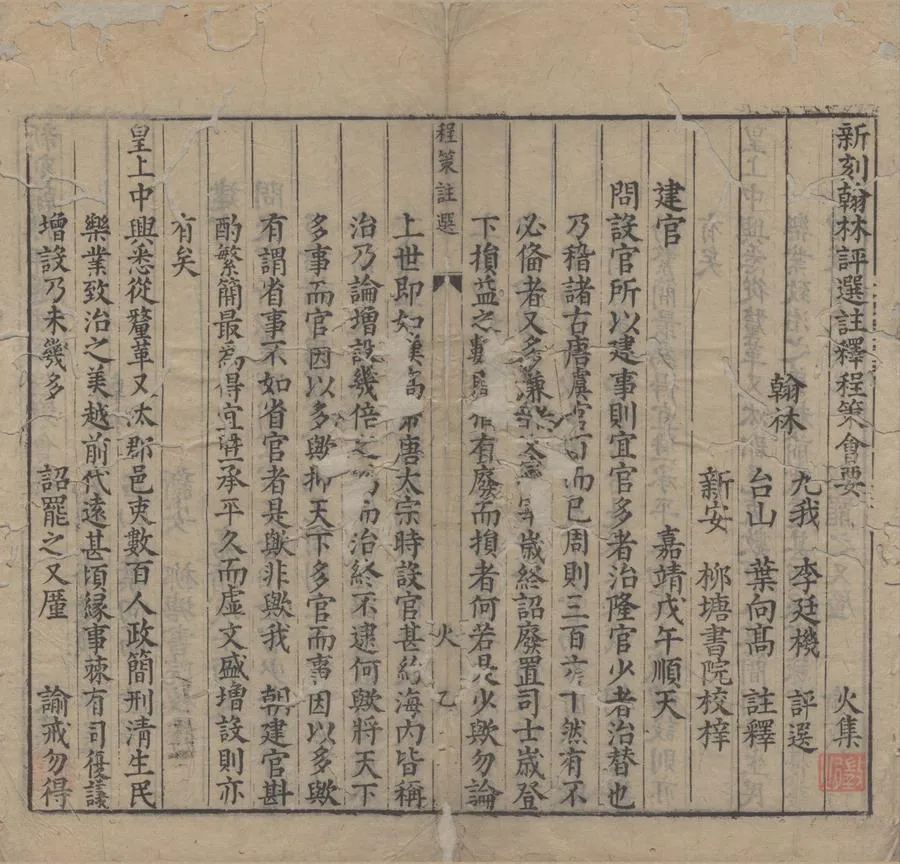 新刻翰林評選註釋程策會要 火集
翰林 九我 李廷機 評選
台山 葉向高 註釋
新安 柳塘書院校梓
建官 嘉靖戊午順天
問設官所以建事則宜官多者治隆官少者治替也
乃稽諸古唐虞官百而已周則三百六十然有不
必俻者又多兼歲終詔廢置司士歲登
下損益之有廢而損者何若是少歟勿論
程策註選 火 乙
上世即如漢高帝唐太宗時設官甚約海内皆稱
治乃論增設幾倍之而治終不逮何歟將天下
多事而官因以多歟抑天下多官而事因以多歟
有謂省事不如省官者是歟非歟我 朝建官斟
酌繁簡最為得宜迨承平久而虛文盛增設則亦
有矣
皇上中興悉從釐革又汰郡邑吏數百人政簡刑淸生民
樂業致治之美越前代遠甚頃緣事棘有司復議
增設乃未幾多 詔罷之又屢 諭戒勿得